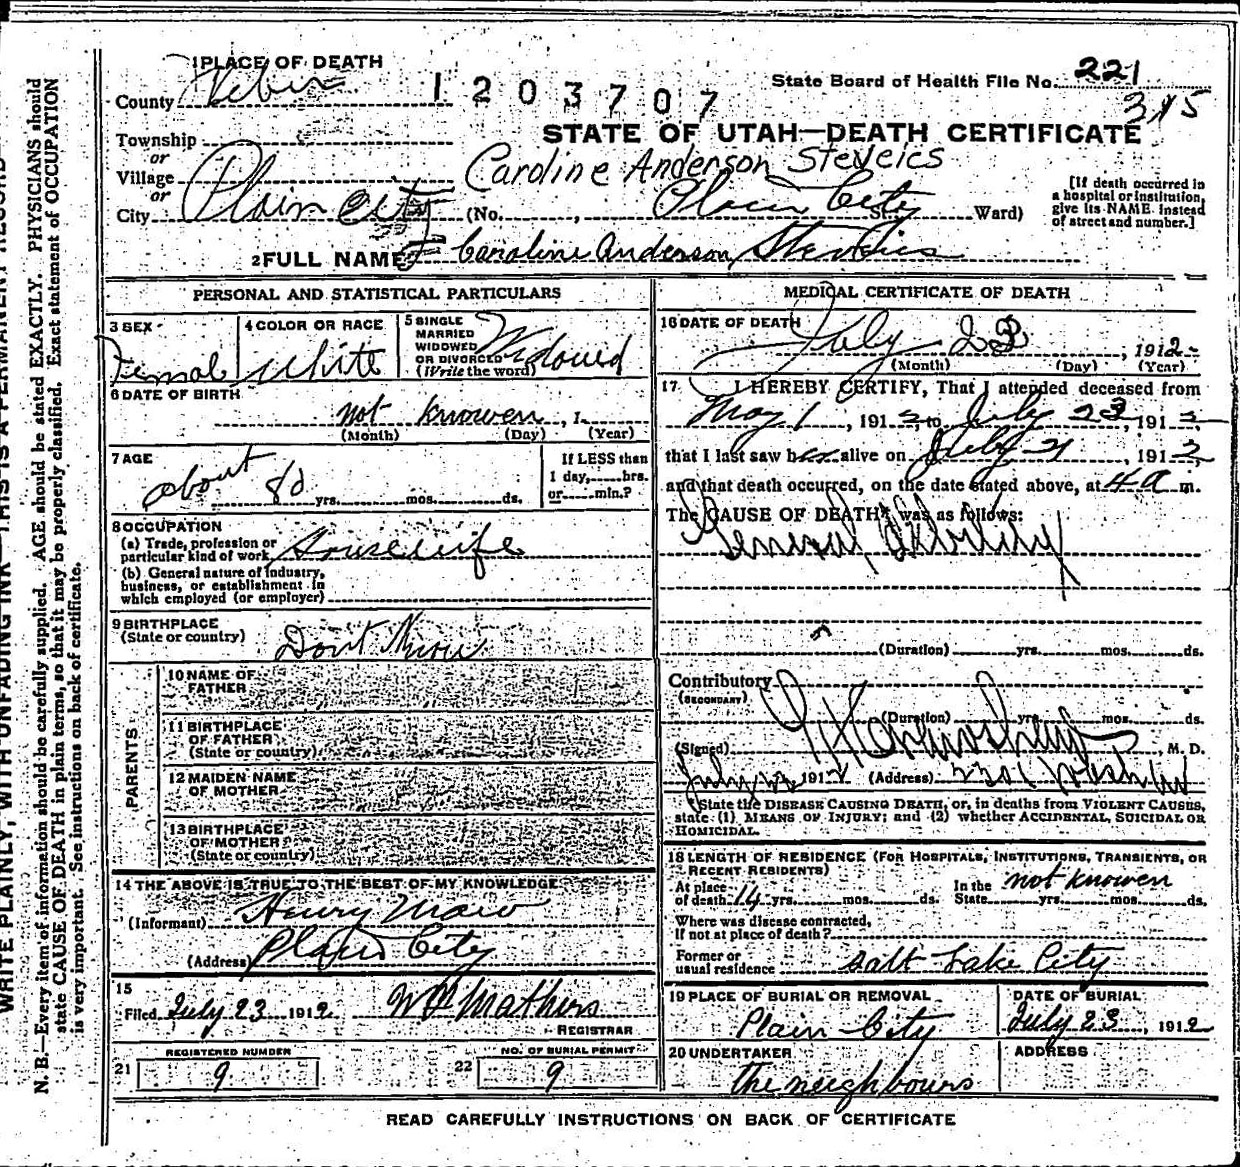 WRITE PLAINLY, WITH UNFADING INK—THIS IS A PERMANENT RECORD
N. B.—Every item of information should be carefully supplied. AGE should be stated EXACTLY. PHYSICIANS should
state CAUSE OF DEATH in plain terms, so that it may be properly classified. Exact statement of OCCUPATION
is very important. See instructions on back of certificate.
1 PLACE OF DEATH
County Weber
1203707
State Board of Health File No. 221
315
STATE OF UTAH—DEATH CERTIFICATE
Township
or
Village
or
City Plain City
Caroline Anderson Steveics
(No. , Plain City St. Ward)
[If death occurred in
a hospital or institution,
give its NAME instead
of street and number.]
2 FULL NAME Caroline Anderson
PERSONAL AND STATISTICAL PARTICULARS
3 SEX
Female
4 COLOR OR RACE
White
5 SINGLE
MARRIED
WIDOWED
OR DIVORCED
(Write the word)
Widowed
6 DATE OF BIRTH
not knowen , 1
(Month) (Day) (Year)
7 AGE
about 80 yrs. mos. ds.
If LESS than
1 day, hrs.
or min.?
8 OCCUPATION
(a) Trade, profession or
particular kind of work Housewife
(b) General nature of industry,
business, or establishment in
which employed (or employer)
9 BIRTHPLACE
(State or country)
Dont Know
PARENTS
10 NAME OF
FATHER
11 BIRTHPLACE
OF FATHER
(State or country)
12 MAIDEN NAME
OF MOTHER
13 BIRTHPLACE
OF MOTHER
(State or country)
14 THE ABOVE IS TRUE TO THE BEST OF MY KNOWLEDGE
(Informant) Henry Maw
(Address) Plain City
15
Filed July 23 1912 Mathers
REGISTRAR
21
REGISTERED NUMBER
9
22
NO. OF BURIAL PERMIT
9
MEDICAL CERTIFICATE OF DEATH
16 DATE OF DEATH
July , 1912
(Month) (Day) (Year)
17 I HEREBY CERTIFY, That I attended deceased from
May 1 , 1912, to July 23, 1912,
that I last saw her alive on July 21 , 1912,
and that death occurred, on the date stated above, at 4 a m.
The CAUSE OF DEATH* was as follows:
General Debility
(Duration) yrs. mos. ds.
Contributory
(SECONDARY)
(Duration) yrs. mos. ds.
(Signed) , M. D.
July 1912 (Address)
*State the DISEASE CAUSING DEATH, or, in deaths from VIOLENT CAUSES,
state (1) MEANS OF INJURY; and (2) whether ACCIDENTAL, SUICIDAL OR
HOMICIDAL.
18 LENGTH OF RESIDENCE (FOR HOSPITALS, INSTITUTIONS, TRANSIENTS, OR
RECENT RESIDENTS)
At place
of death 14 yrs. mos. ds.
In the
State yrs. mos. ds.
not knowen
Where was disease contracted,
if not at place of death?
Former or
usual residence Salt Lake City
19 PLACE OF BURIAL OR REMOVAL
Plain City
DATE OF BURIAL
July 23, 1912
20 UNDERTAKER
the neighbours
ADDRESS
READ CAREFULLY INSTRUCTIONS ON BACK OF CERTIFICATE